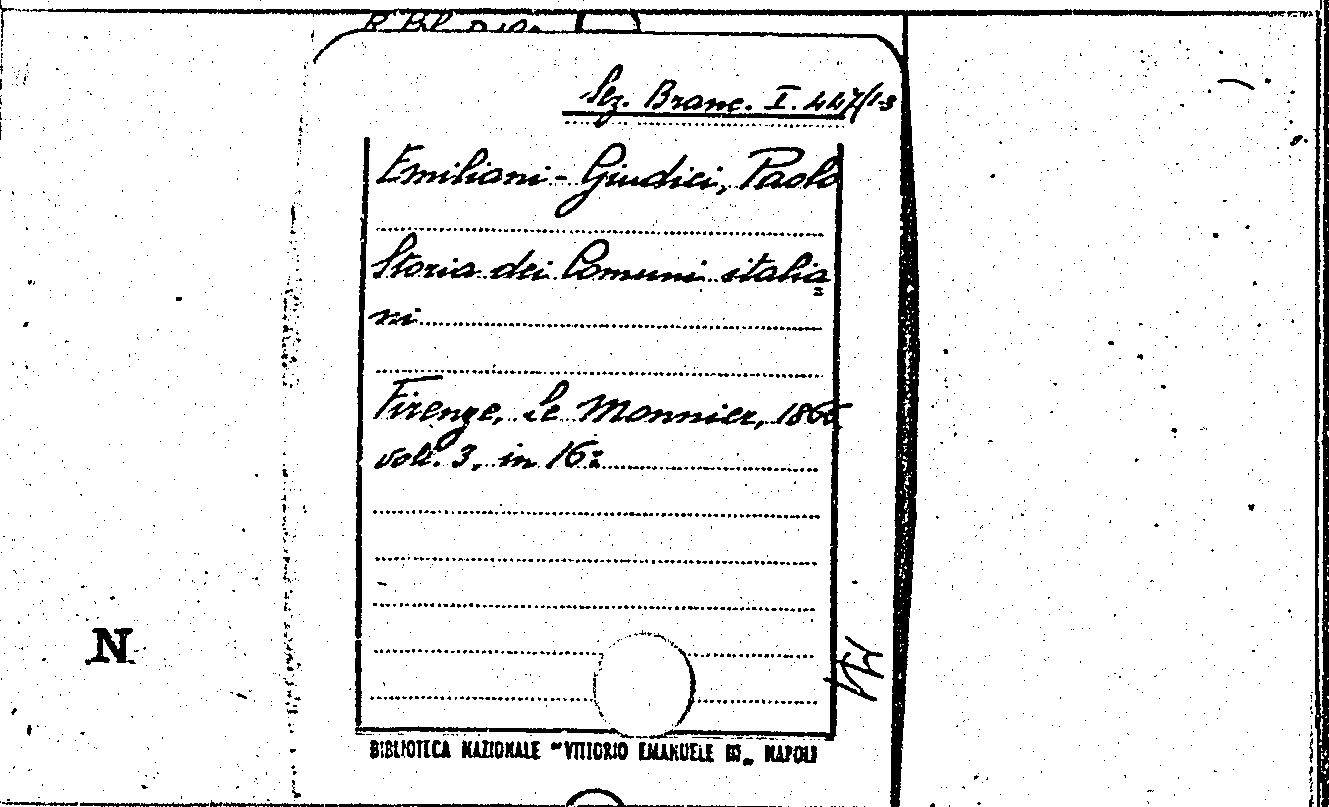 Sez. Branc. I. 447/1-3
Emiliani - Giudici, Paolo
Storia dei Comuni italia=
ni
Firenze, Le Monnier, 1866
voll. 3, in 16:
N
BIBLIOTECA NAZIONALE "VITTORIO EMANUELE III" NAPOLI